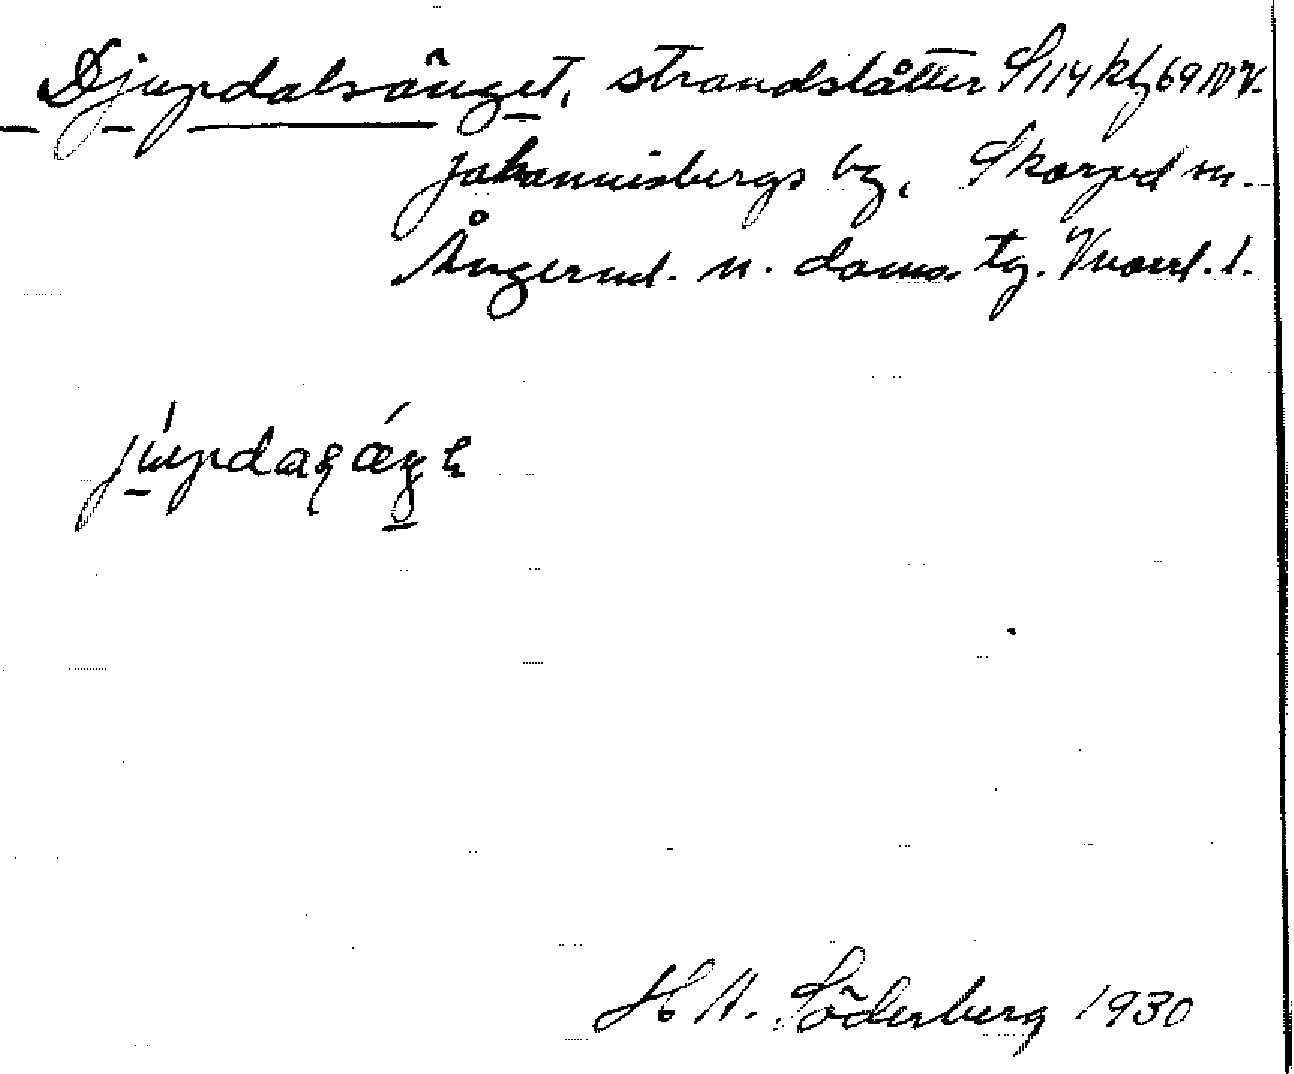 Djupdalsänget, strandslåtter S114 kl 69 NV.
Johannisbergs by, Skorped sn.
Ångerml. n. doms. tg. Vnorrl. l.
H A. Söderberg 1930